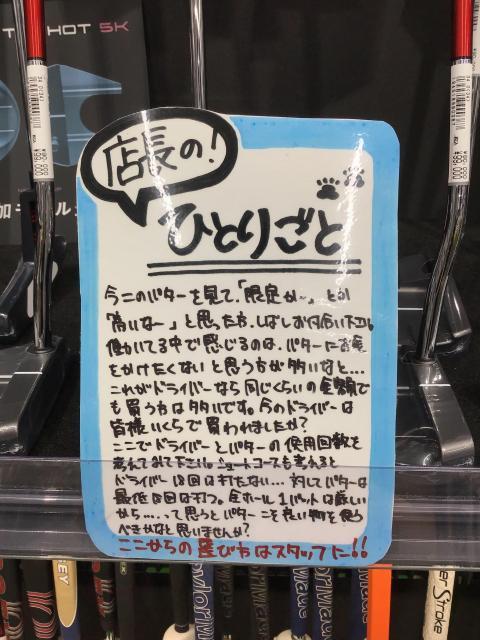 T HOT 5K
店長の!
ひとりごと
今このパターを見て、「限定か~」とか
「高いなー」と思った方、しばしお付合い下さい。
働いてる中で感じるのは、パターにお金
をかけたくないと思う方が多いなと...
これがドライバーなら同じくらいの金額で
も買う方は多いです。今のドライバーは
皆様いくらで買われましたか?
ここでドライバーとパターの使用回数を
考えてみて下さい。ショートコースも考えると
ドライバー18回は打たない...対してパターは
最低18回は打つ。全ホール1パットは厳しい
から.....って思うとパターこそ良い物を使う
べきかなと思いませんか?
ここからの選び方はスタッフに!!
EY
er Stroke